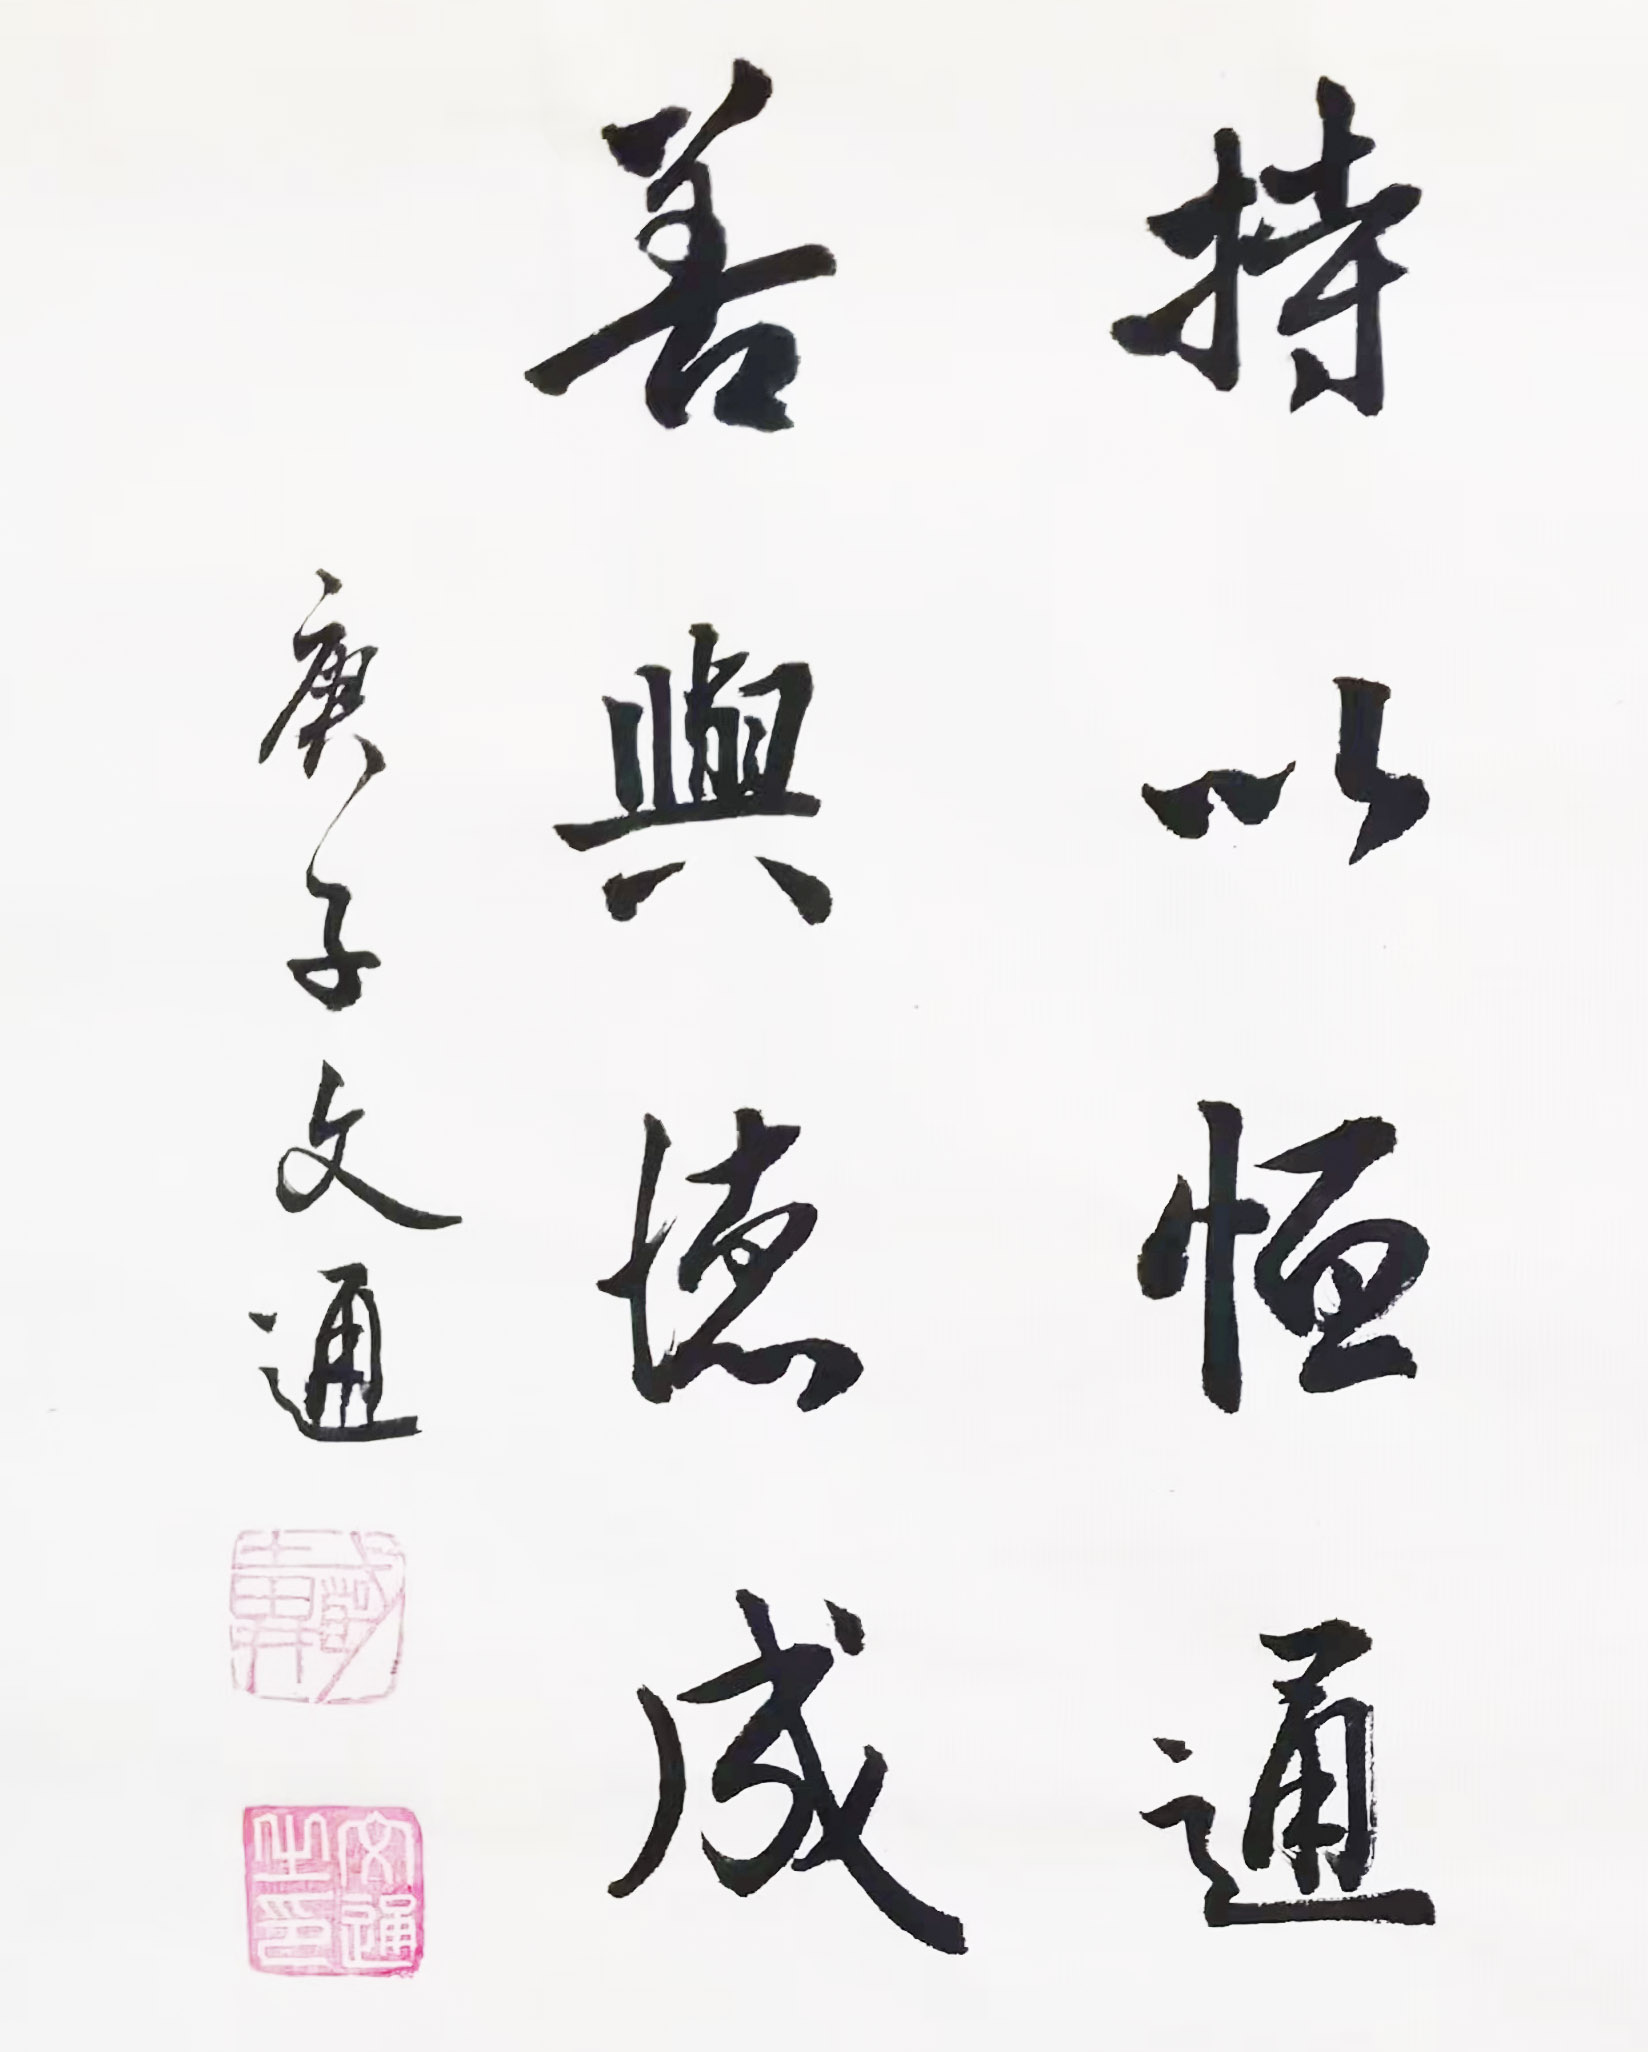 持以恒通
善與德成
庚子文通
文通之印